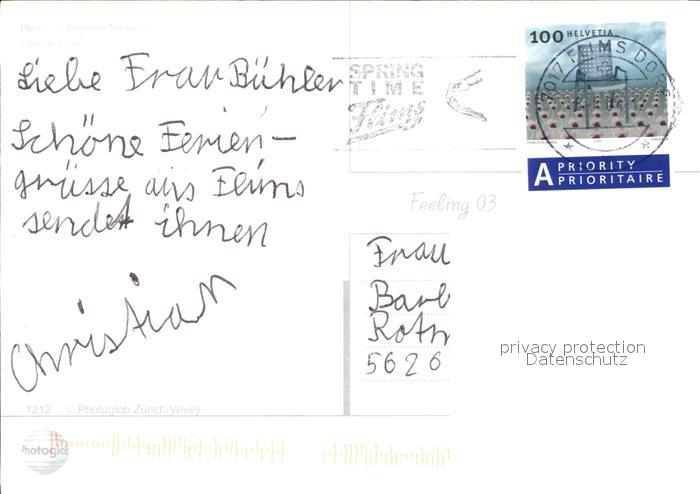 Photo: Zbigniew Nadolny
100 HELVETIA
Liebe Frau Bühler
SPRING
TIME
Flims
7017 FLIMS DORF
Schöne Ferien-
grüsse aus Flims
sendet ihnen
A PRIORITY
PRIORITAIRE
Feeling 03
Christian
Frau
Barb
Rotm
5626
privacy protection
Datenschutz
1212 © Photoglob Zürich/Vevey
Photoglob